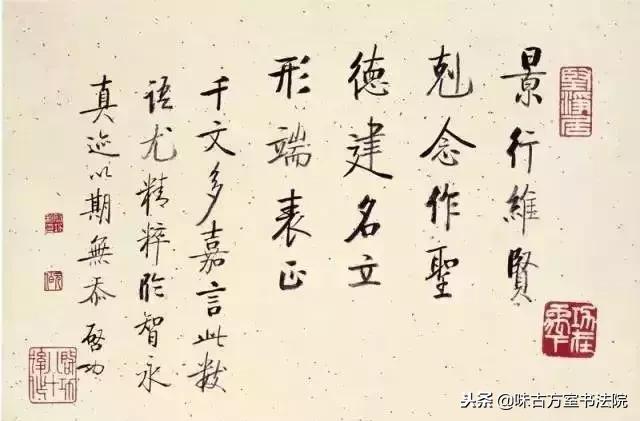 景行維賢
剋念作聖
徳建名立
形端表正
千文多嘉言此數
語尤精粹臨智永
真迹以期無忝啓功
头条@味古方室书法院